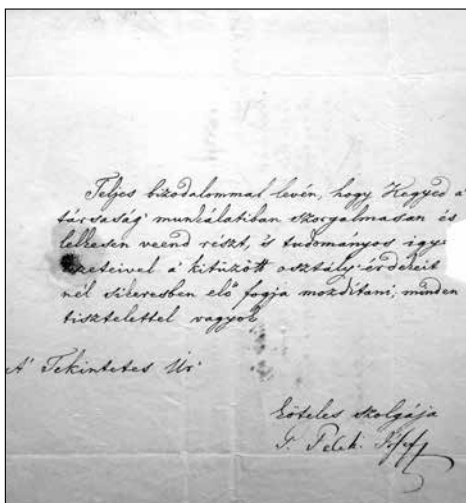 Teljes bizodalommal levén, hogy Kegyed a'
társaság' munkálatiban szorgalmasan és
lelkesen veend részt, is tudományos igye-
zeteivel a' kitűzött osztály' érdekeit
nél sikeresben elő fogja mozdítani, minden
tisztelettel vagyok
A' Tekintetes Úr'
köteles szolgája
G. Teleki József